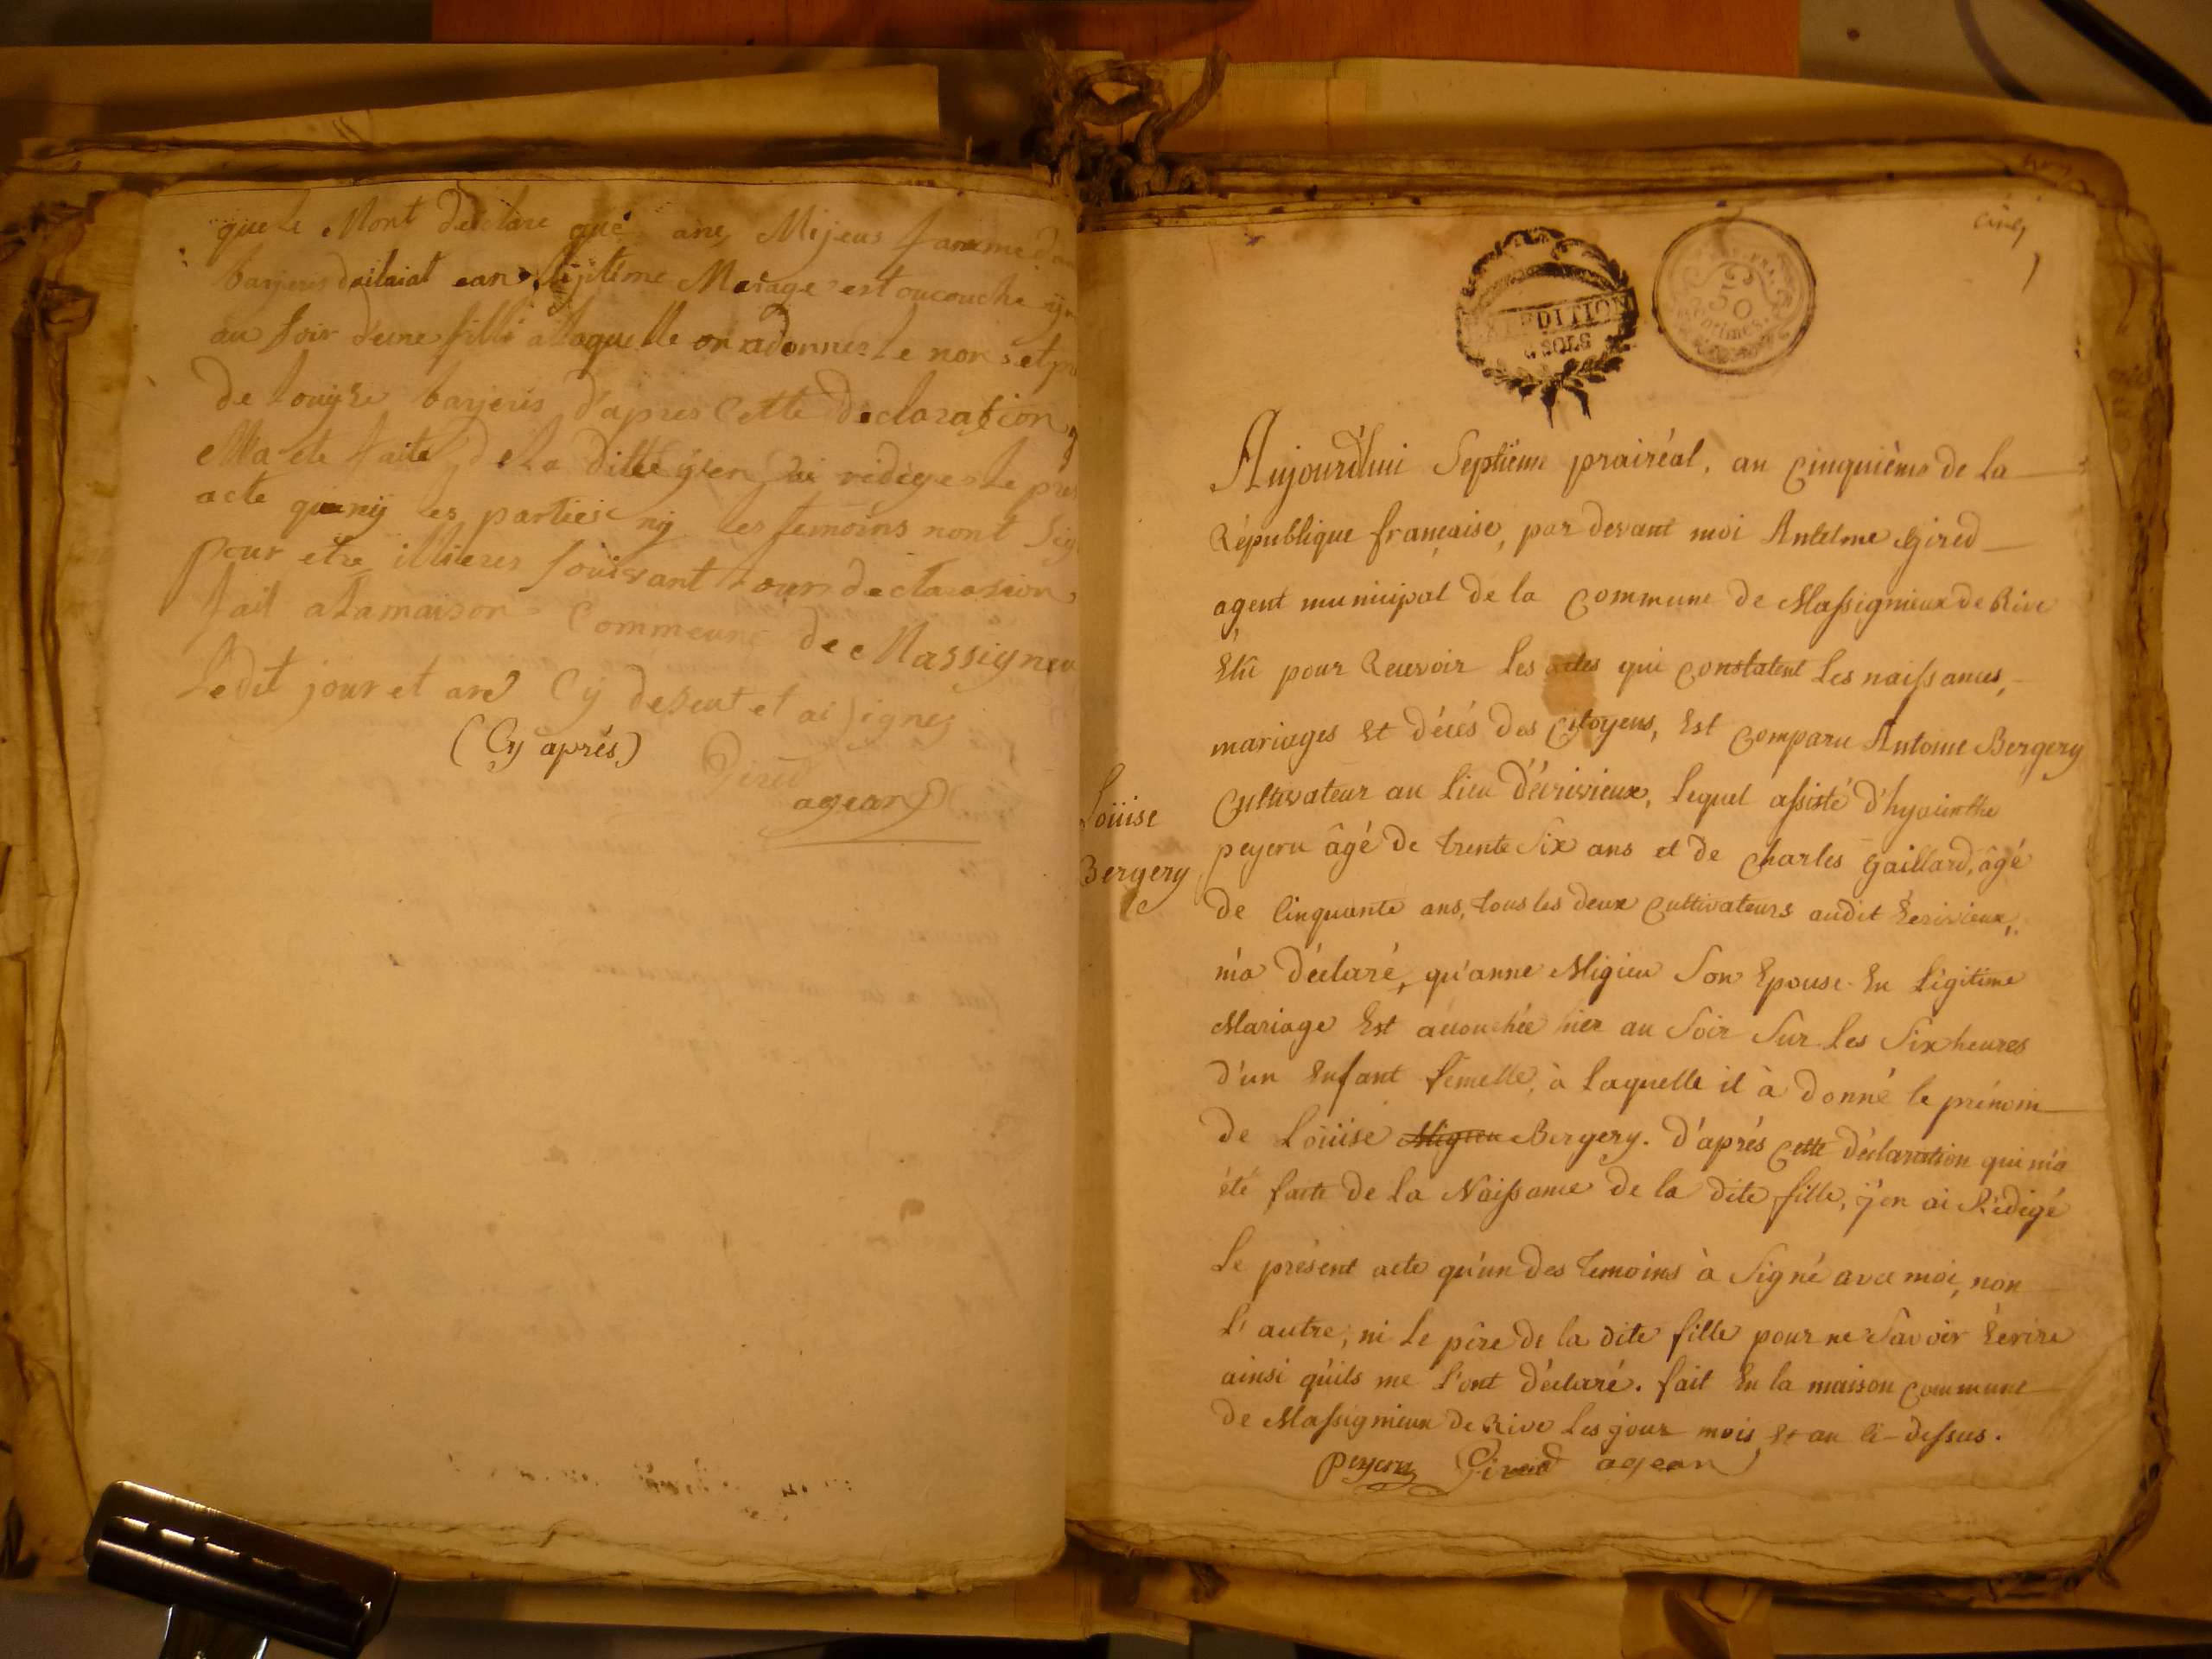 que le Mont declare que ane Mijeus famme
barjeris lejitime Mariage est oucouche
au soir d'eune filli a laquelle on adonnés le non set
de louise barjeris d'apres Cette declarasion
ella ete faite de la ditte ai redigé le
acte quenij les parties nij les temoins nont
pour etre illiteres souivant tour declarasion
fait alamaison Commeune de Massigneu
Ledit jour et ane Cy deseut et ai signes
(Cy aprés)
Gired
agean
cinq
EXPEDITION
SOLS
50
Centimes
Aujourd'hui Septieme prairéal, an Cinquième de la
République française, par devant moi Antelme Gired
agent municipal de la Commune de Massignieux de Rive
Elû pour Recevoir Les actes qui Constatent Les naissances,
mariages Et décés des Citoyens, Est Comparu Antoine Bergery
Cultivateur au Lieu d'écrivieux, Lequel assisté d'hyacinthe
peyeru âgé de trente Six ans et de Charles Gaillard, âgé
de Cinquante ans, tous les deux Cultivateurs audit Ecrivieux,
Loüise
Bergery
m'a déclaré, qu'anne Migieu Son Epouse En Légitime
Mariage Est accouchée hier au Soir Sur Les Six heures
d'un Enfant femelle, à Laquelle il à donné le prénom
de Loüise Migieu Bergery. d'aprés Cette déclaration qui m'a
été faite de La Naissance de la dite fille, j'en ai Rédigé
Le présent acte qu'un des temoins à Signé avec moi, non
L'autre, ni Le pére de la dite fille pour ne Savoir Ecrire
ainsi qu'ils me L'ont déclaré. fait En la maison Commune
de Massignieux de Rive Les jour mois Et an Ci-dessus.
peyeru Gired agean